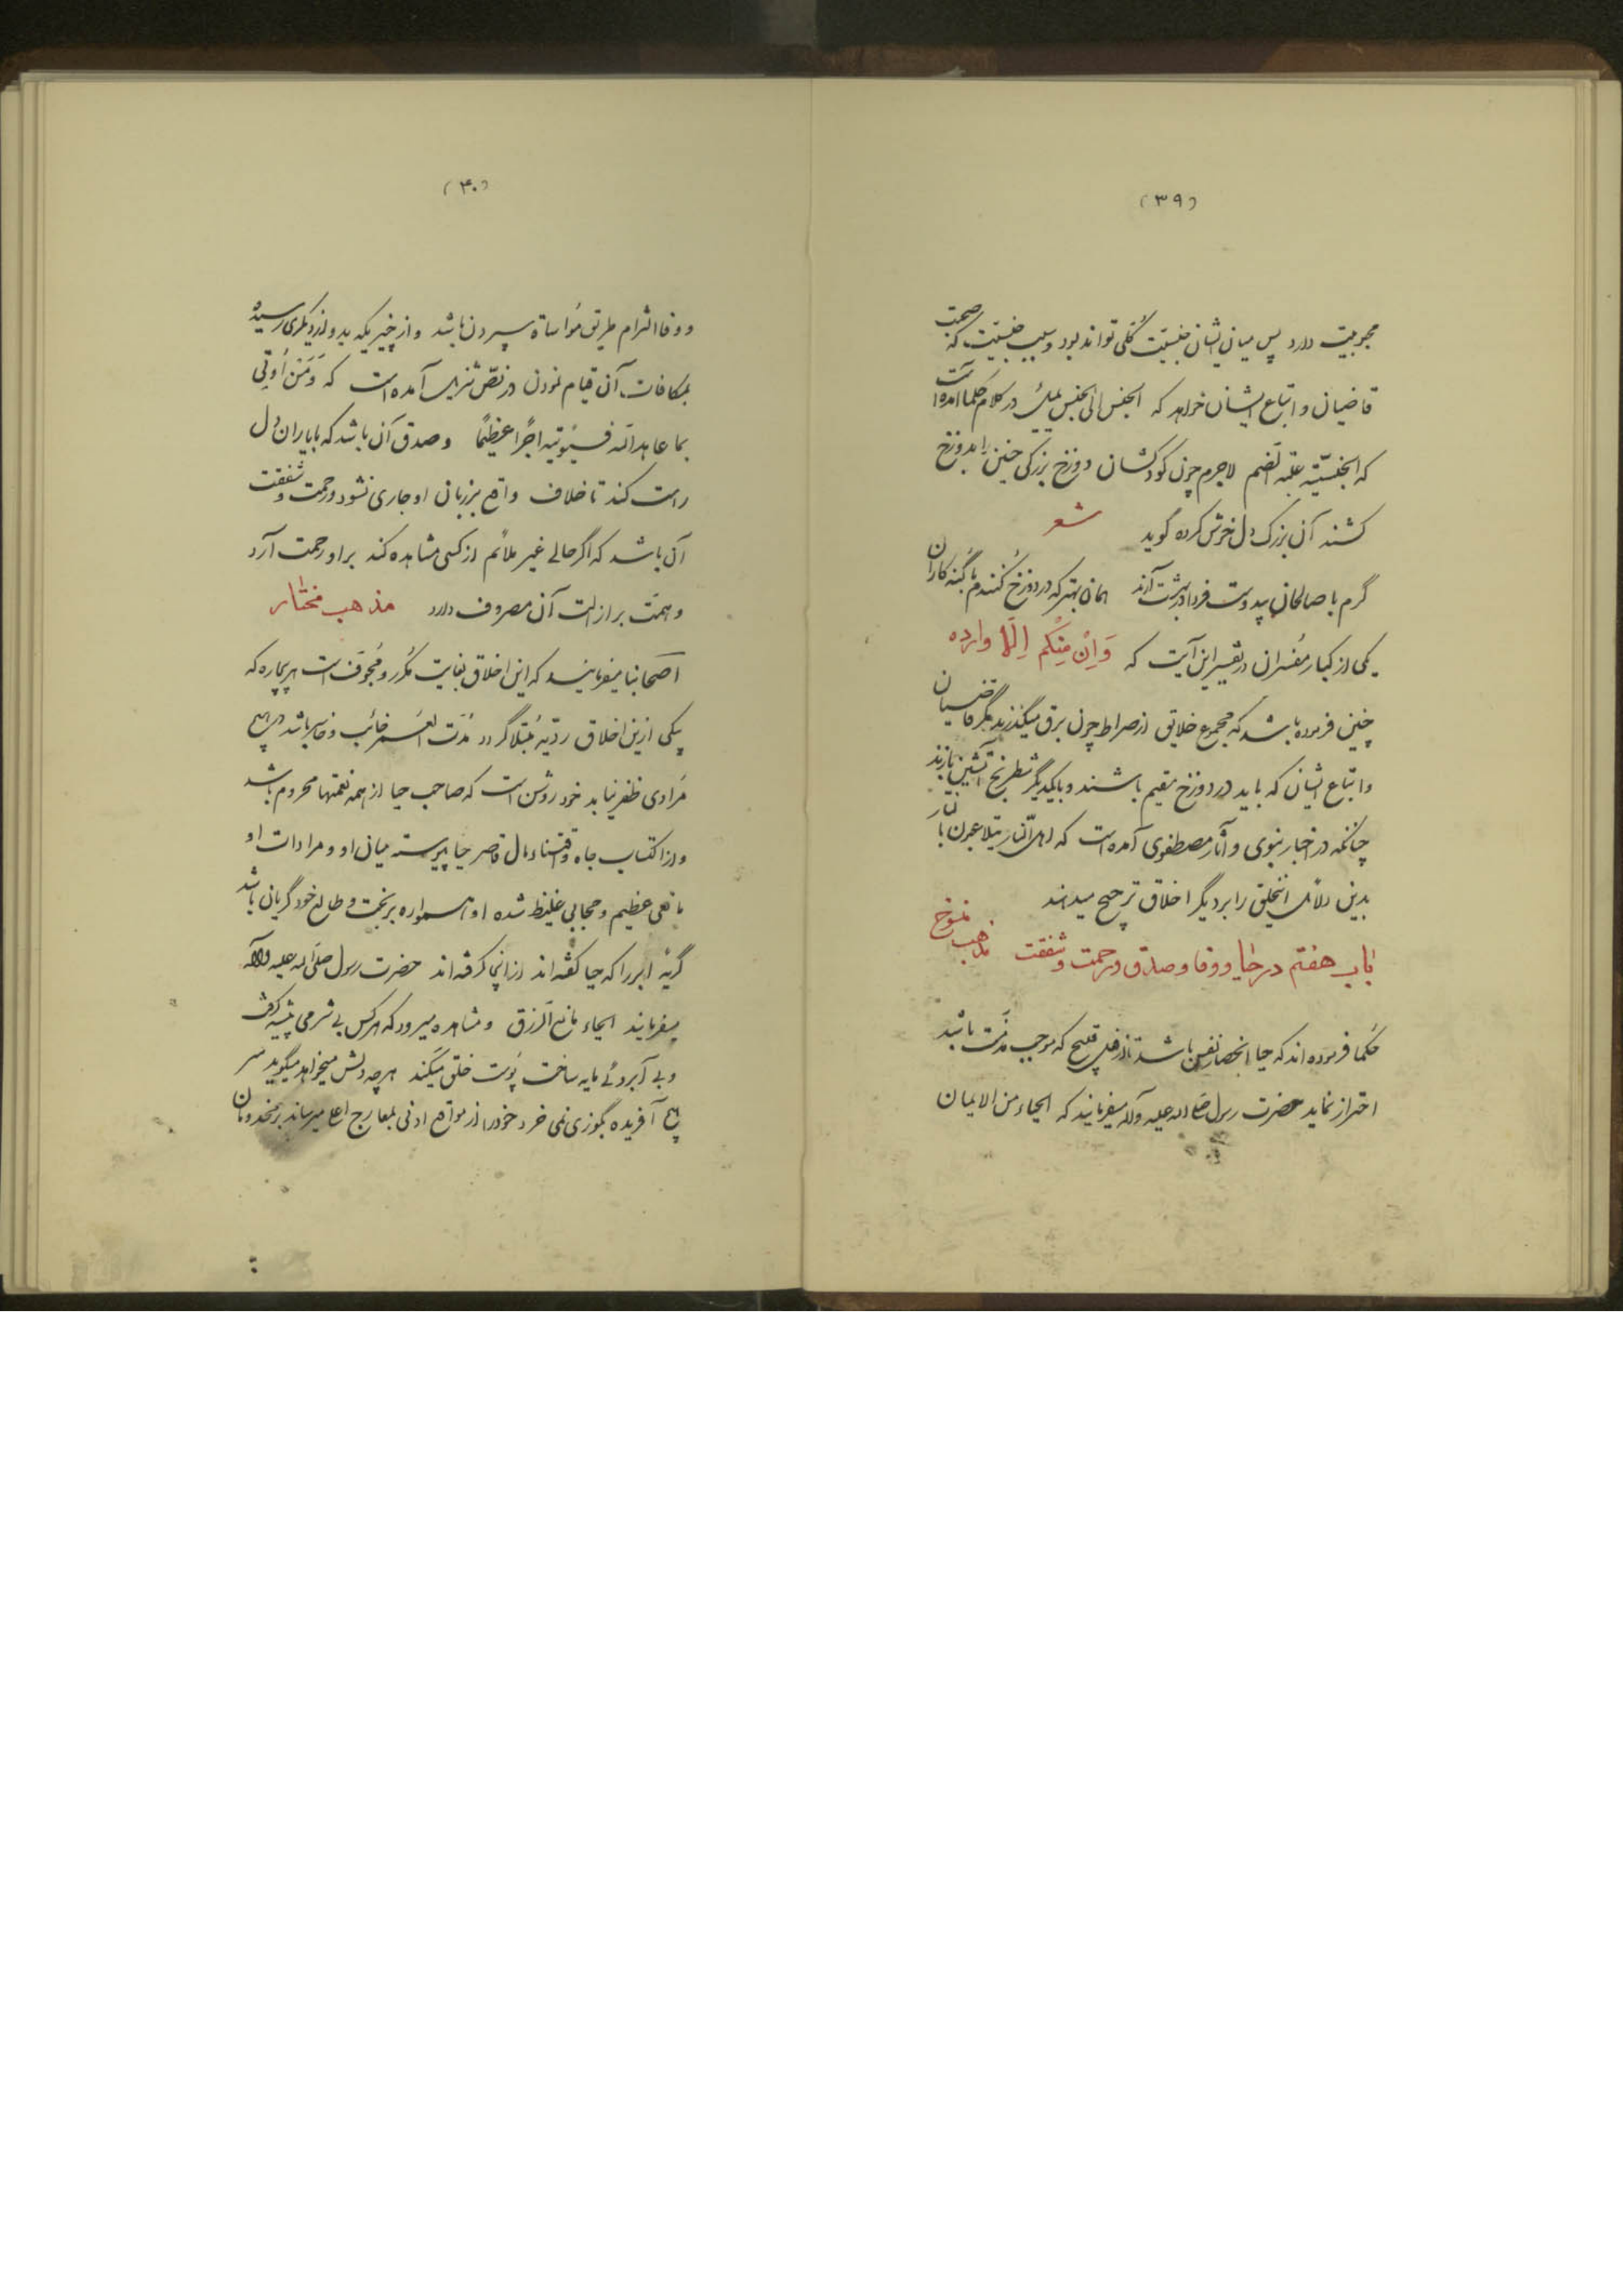 (۳۹)
مجوبیت دارد پس میان ایشان جنسیّت کُلی تواند بود و سبب جنسیّت که صحبت
قاضیان و اتباع ایشان خواهد که الجنس الی الجنس یمیل در کلام حکما آمده است
که الجنسیّة علّة الضم لاجرم چون کودکشان دوزخ بزرگی چنین را بدوزخ
کشند آن بزرگ دل خوش کرده گوید شعر
گرم با صالحان بیدوست فردا در بهشت آرند همان بهتر که در دوزخ کُنندم با گنه کاران
یکی از کبار مفسران در تفسیر این آیت که وَاِنْ مِنْکُم اِلَّا وارده
چنین فرموده باشد که مجموع خلایق از صراط چون برق میگذرند مگر قاضیان
و اتباع ایشان که باید در دوزخ مقیم باشند و با یکدیگر شطرنج آتشین بازند
چنانکه در اخبار نبوی و آثار مصطفوی آمده است که اهل النار یتلاعبون بالنار
بدین دلائل اینخلق را بر دیگر اخلاق ترجیح میدهند
باب هفتم در حیا و وفا و صدق و رحمت و شفقت مذهب منسوخ
حُکما فرموده اند که حیا انحصار نفس باشد تا از فعل قبیح که موجب مذمّت باشد
احتراز نماید حضرت رسول صلی الله علیه و آله میفرمایند که الحیاء من الایمان
(۴۰)
و وفا التزام طریق مُواساة سپردن باشد و از چیزیکه بدو از دیگری رسیده
بمکافات آن قیام نمودن در نصّ تنزیل آمده است که وَمَن اُوتی
بما عاهد الله فسیؤتیه اجرًا عظیمًا و صدق آن باشد که با یاران دل
راست کند تا خلاف واقع بر زبان او جاری نشود و رحمت و شفقت
آن باشد که اگر حالی غیر ملائم از کسی مشاهده کند بر او رحمت آرد
و همّت بر ازالت آن مصروف دارد مذهب مختار
اصحابنا میفرمایند که این اخلاق بغایت مکرر و مُجوّف است هر بیچاره که
بیکی ازین اخلاق ردیّه مُبتلا گردد مُدّت العمر خائب و خاسر باشد در هیچ
مرادی ظفر نیابد خود روشن است که صاحب حیا از همه نعمتها محروم باشد
و از اکتساب جاه و اقتناء مال قاصر حیا پیوسته میان او و مرادات او
مانعی عظیم و حجابی غلیظ شده او همواره بر بخت و طالع خود گریان باشد
گریه ابر را که حیا گفته اند از اینجا گرفته اند حضرت رسول صلی الله علیه و آله
میفرمایند الحیاء مانع الرزق و مشاهده میرود که هر کس بی شرمی پیشه گرفت
و بی آبروئی مایه ساخت پُوست خلق میکَند هر چه دلش میخواهد میگوید سر
هیچ آفریده بگوزی نمی خرد خود را از مواقع ادنی بمعارج اعلی میرساند بر مخدومان